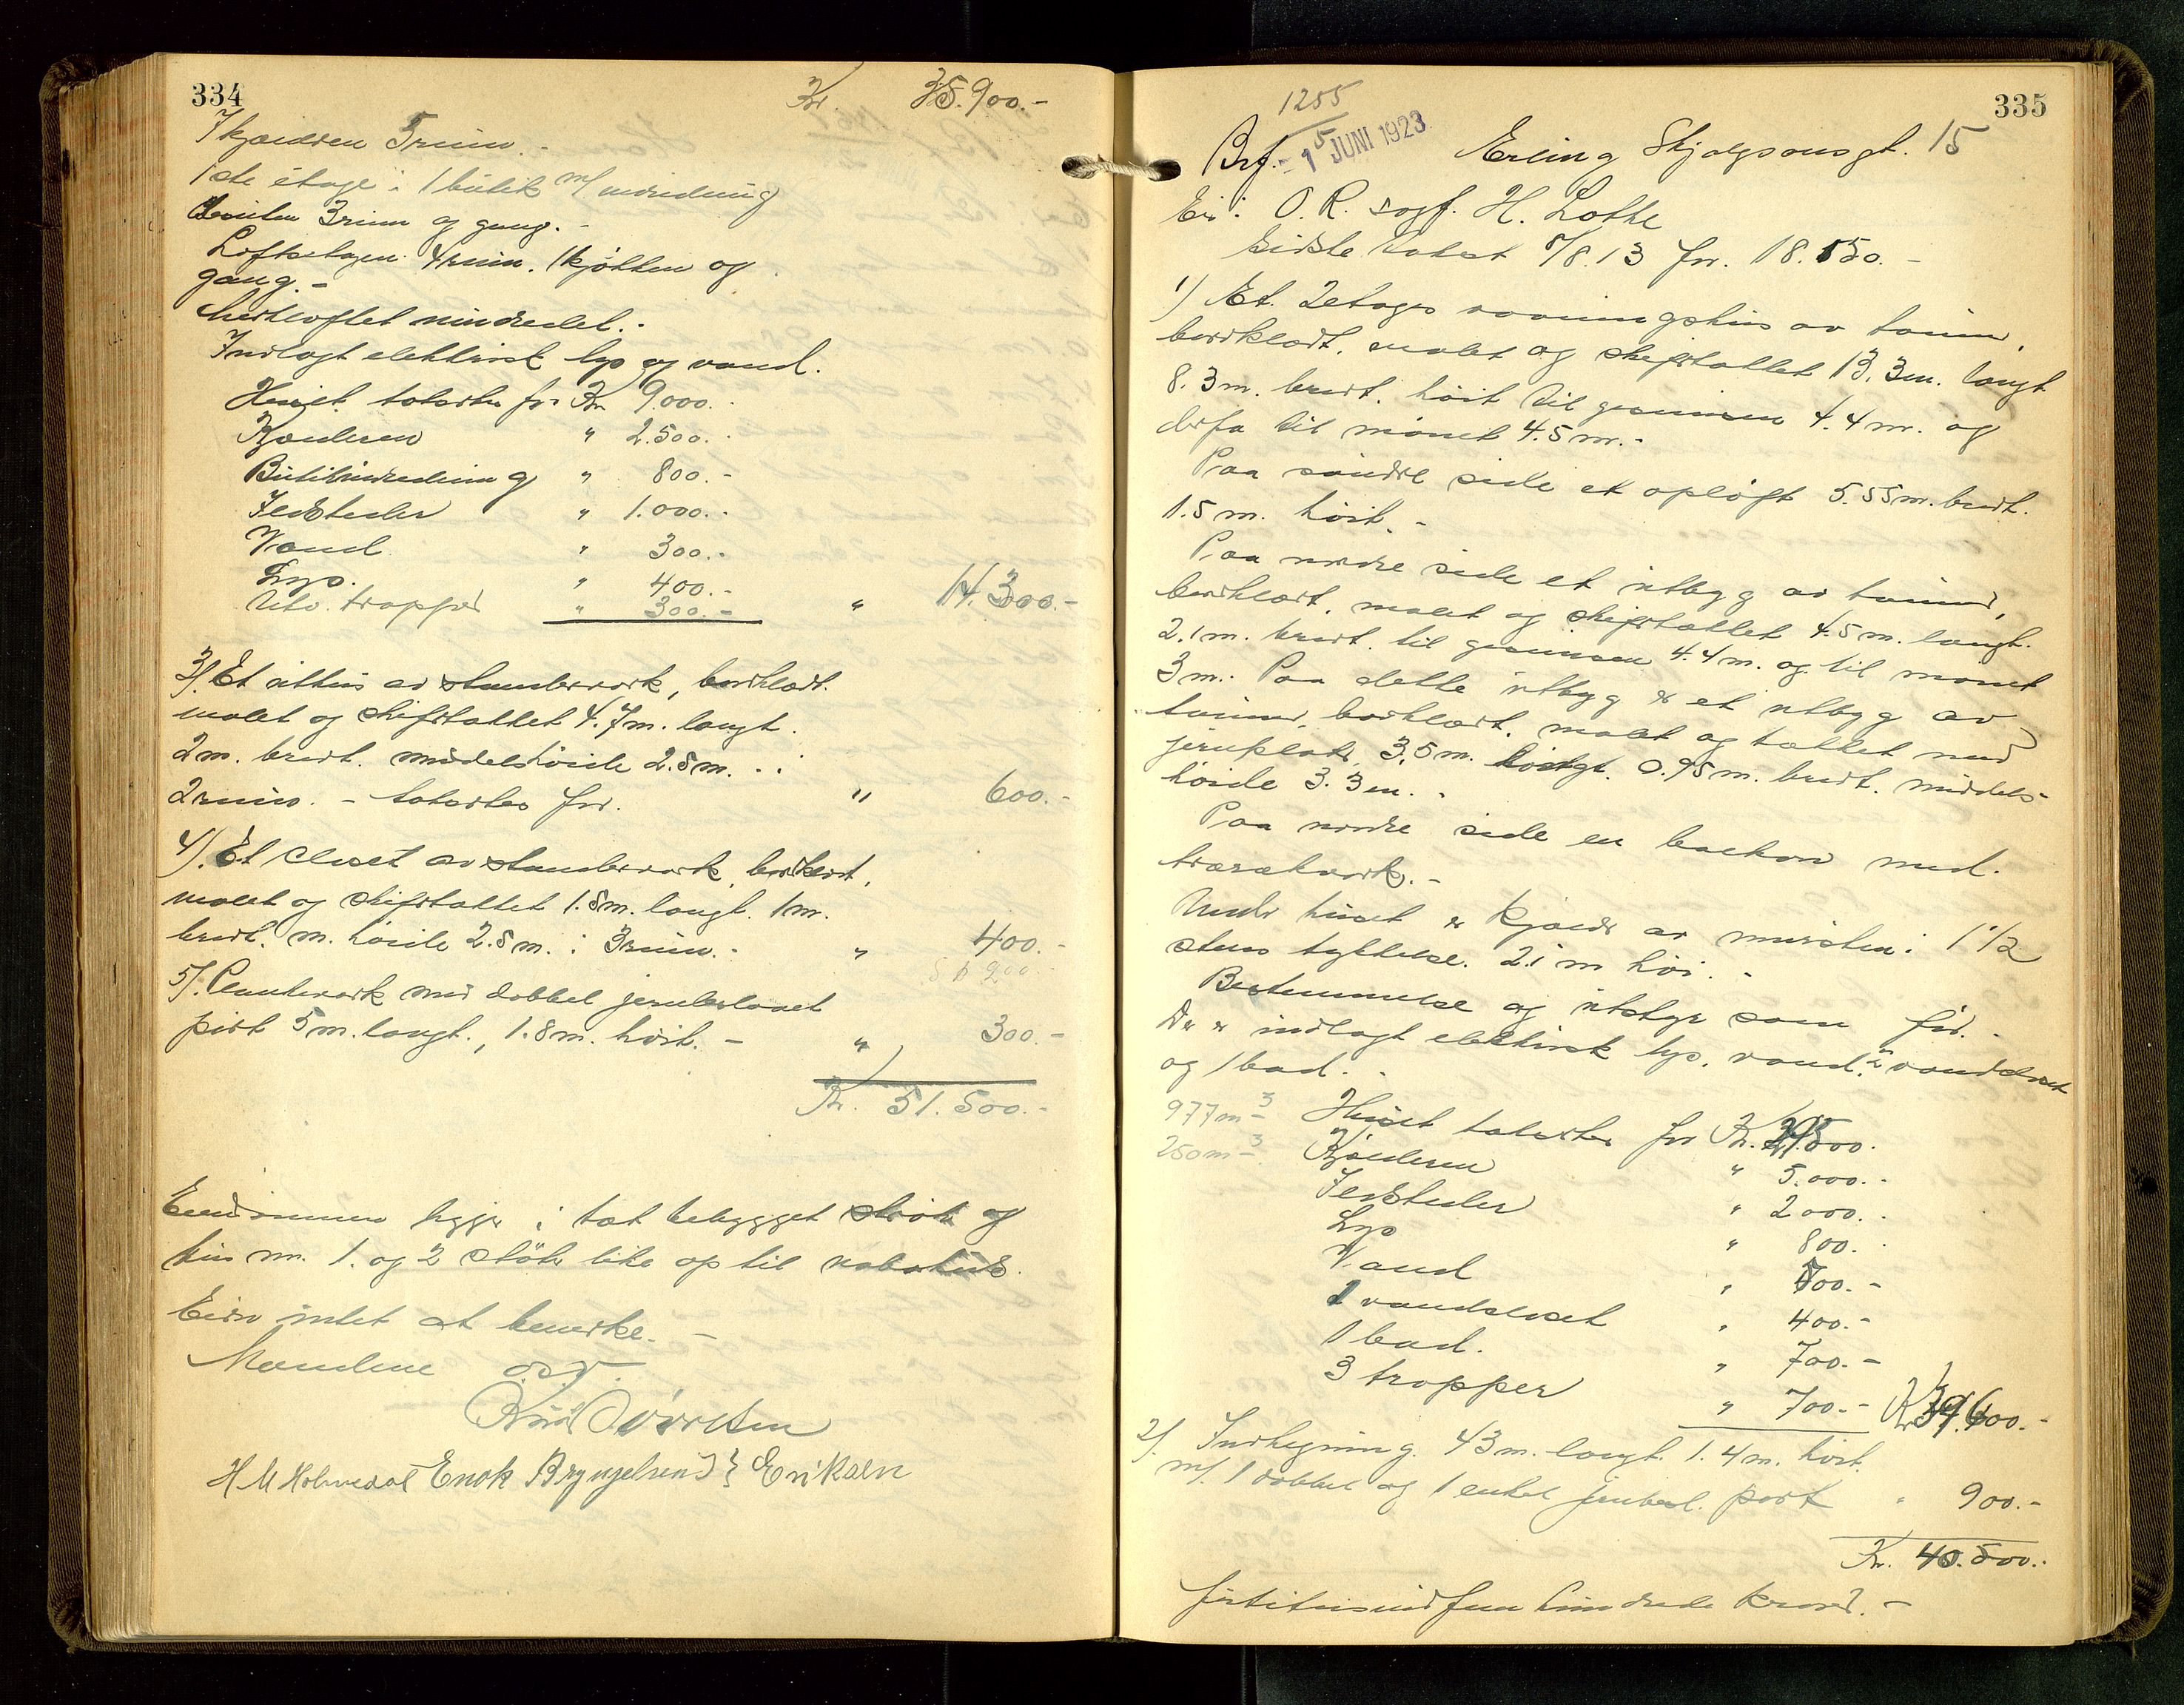 334
Kr. 35.900.-
I kjælderen 5 rum.-
1ste etage: 1 butik m/ indredning
desuten 3 rum og gang.-
Loftsetagen 4 rum. 1 kjøkken og
gang.-
Mørkloftet uindredet.-
Indlagt elektrisk lys og vand.
Huset taksertes for Kr. 9.000.-
Kjælderen " 2.500.-
Butikindredning " 800.-
Ildsteder " 1.000.-
Vand " 300.-
Lys. " 400.-
Utv. trapper " 300.- " 14.300.-
3/. Et uthus av stenderverk, bordklædt.
malet og skifertækket 4.7m. langt.
2m. bredt. middelshøide 2.5m.-:
2 rum. - takseres for. " 600.-
4/. Et closet av stenderverk, bordklædt,
malet og skifertækket 1.8m. langt. 1m.
bredt. m. høide 2.5m.: 3 rum.- " 400.-
5/. Plankeverk med dobbel jernbeslaaet
port 5m. langt., 1.8m. høit.- " 300.-
Kr. 51.500.-
Eiendommen ligger i tæt bebygget strøk og
hus nr. 1. og 2 støter like op til nabohus.
Eieren intet at bemerke.-
Mændene o.s.v.
H M Holmedal Enok Bryngelsen J. Eriksen
335
1255
Brf. - 1 5 JUNI 1923 Erling Skjalgsonsgt. 15
Eier: O. R. sagf. H. Lothe
Sidste takst 5/8.13 for. 18.150.-
1/ Et 2etages vaaningshus av tømmer,
bordklædt, malet og skifertækket 13.3m. langt
8.3m. bredt. høit til gesimsen 4.4m. og
derfra til mønet 4.5m.-
Paa søndre side et opløft 5.55m. bredt.
1.5m. høit.-
Paa nordre side et utbygg av tømmer,
bordklædt, malet og skifertækket 4.5m. langt.
2.1m. bredt. til gesimsen 4.4m. og til mønet
3m. Paa dette utbygg er et utbygg av
tømmer, bordklædt, malet og tækket med
jernplater, 3.5m. langt. 0.95m. bredt. middels-
høide 3.3m.-
Paa nordre side en balkon med
trærækverk.-
Under huset er kjælder av mursten: 1 1/2
stens tykkelse. 2.1m høi.-
Bestemmelse og utstyr som før.-
Der er indlagt elektrisk lys, vand, 2 vandcloset
og 1 bad.-
977m3 Huset takseres for Kr. 29.500.-
250m3 Kjælderen " 5.000.-
Ildsteder " 2000.-
Lys " 800.-
Vand " 500.-
2 vandcloset " 400.-
1 bad. " 700.-
3 trapper " 700.- Kr 39.600.-
2/. Indhegning. 43m. langt. 1.4m. høit.
m/. 1 dobbel og 1 enkel jernbesl. port " 900.-
Kr. 40.500.-
førtitusindfemhundrede kroner.-